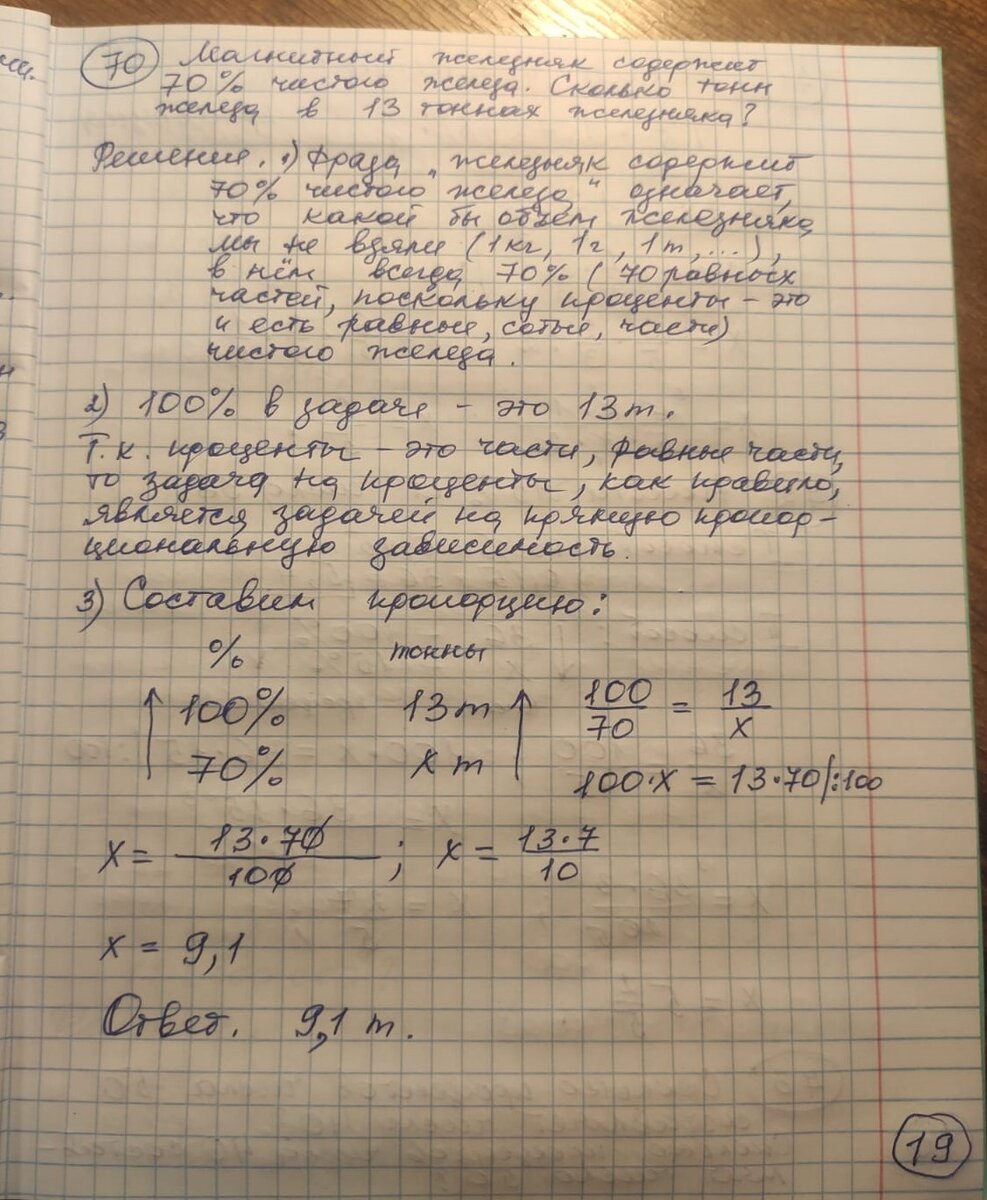 70 Магнитный железняк содержит
70% чистого железа. Сколько тонн
железа в 13 тоннах железняка?
Решение. 1) Фраза „железняк содержит
70% чистого железа“ означает,
что какой бы объём железняка
мы не взяли (1кг, 1г, 1т,...),
в нём всегда 70% (70 равных
частей, поскольку проценты – это
и есть равные, сотые, части)
чистого железа.
2) 100% в задаче – это 13т.
Т.к. проценты – это части, равные части,
то задача на проценты, как правило,
является задачей на прямую пропор-
циональную зависимость.
3) Составим пропорцию:
% тонны
↑ 100% 13т ↑ 100/70 = 13/x
70% x т 100·x = 13·70 |:100
x = 13·70/100 ; x = 13·7/10
x = 9,1
Ответ. 9,1 т.
19